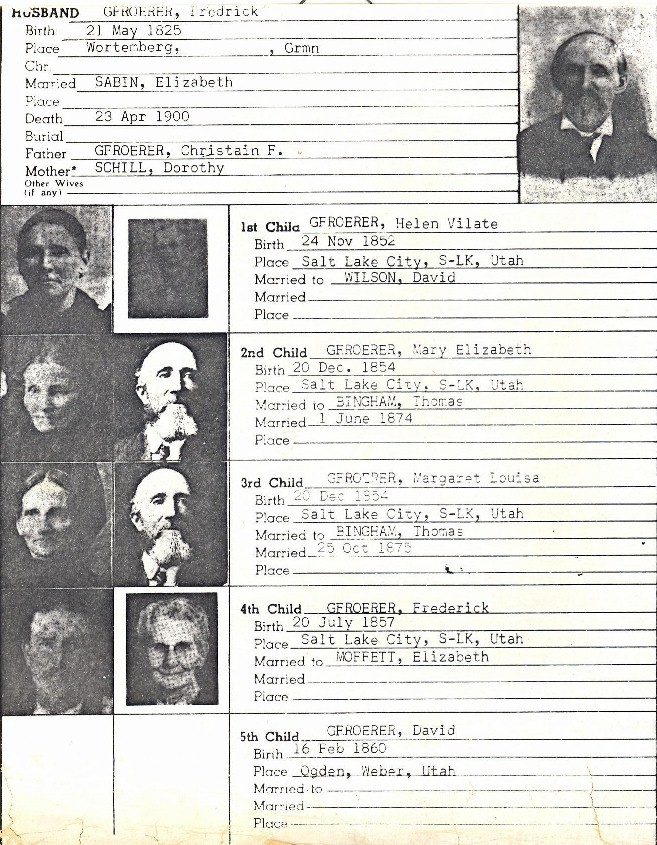 HUSBAND GFROERER, Fredrick
Birth 21 May 1825
Place Wortemberg, , Grmn
Chr
Married SABIN, Elizabeth
Place
Death 23 Apr 1900
Burial
Father GFROERER, Christain F.
Mother* SCHILL, Dorothy
Other Wives
(if any)
1st Child GFROERER, Helen Vilate
Birth 24 Nov 1852
Place Salt Lake City, S-LK, Utah
Married to WILSON, David
Married
Place
2nd Child GFROERER, Mary Elizabeth
Birth 20 Dec. 1854
Place Salt Lake City, S-LK, Utah
Married to BINGHAM, Thomas
Married 1 June 1874
Place
3rd Child GFROERER, Margaret Louisa
Birth 20 Dec 1854
Place Salt Lake City, S-LK, Utah
Married to BINGHAM, Thomas
Married 25 Oct 1875
Place
4th Child GFROERER, Frederick
Birth 20 July 1857
Place Salt Lake City, S-LK, Utah
Married to MOFFETT, Elizabeth
Married
Place
5th Child GFROERER, David
Birth 16 Feb 1860
Place Ogden, Weber, Utah
Married to
Married
Place